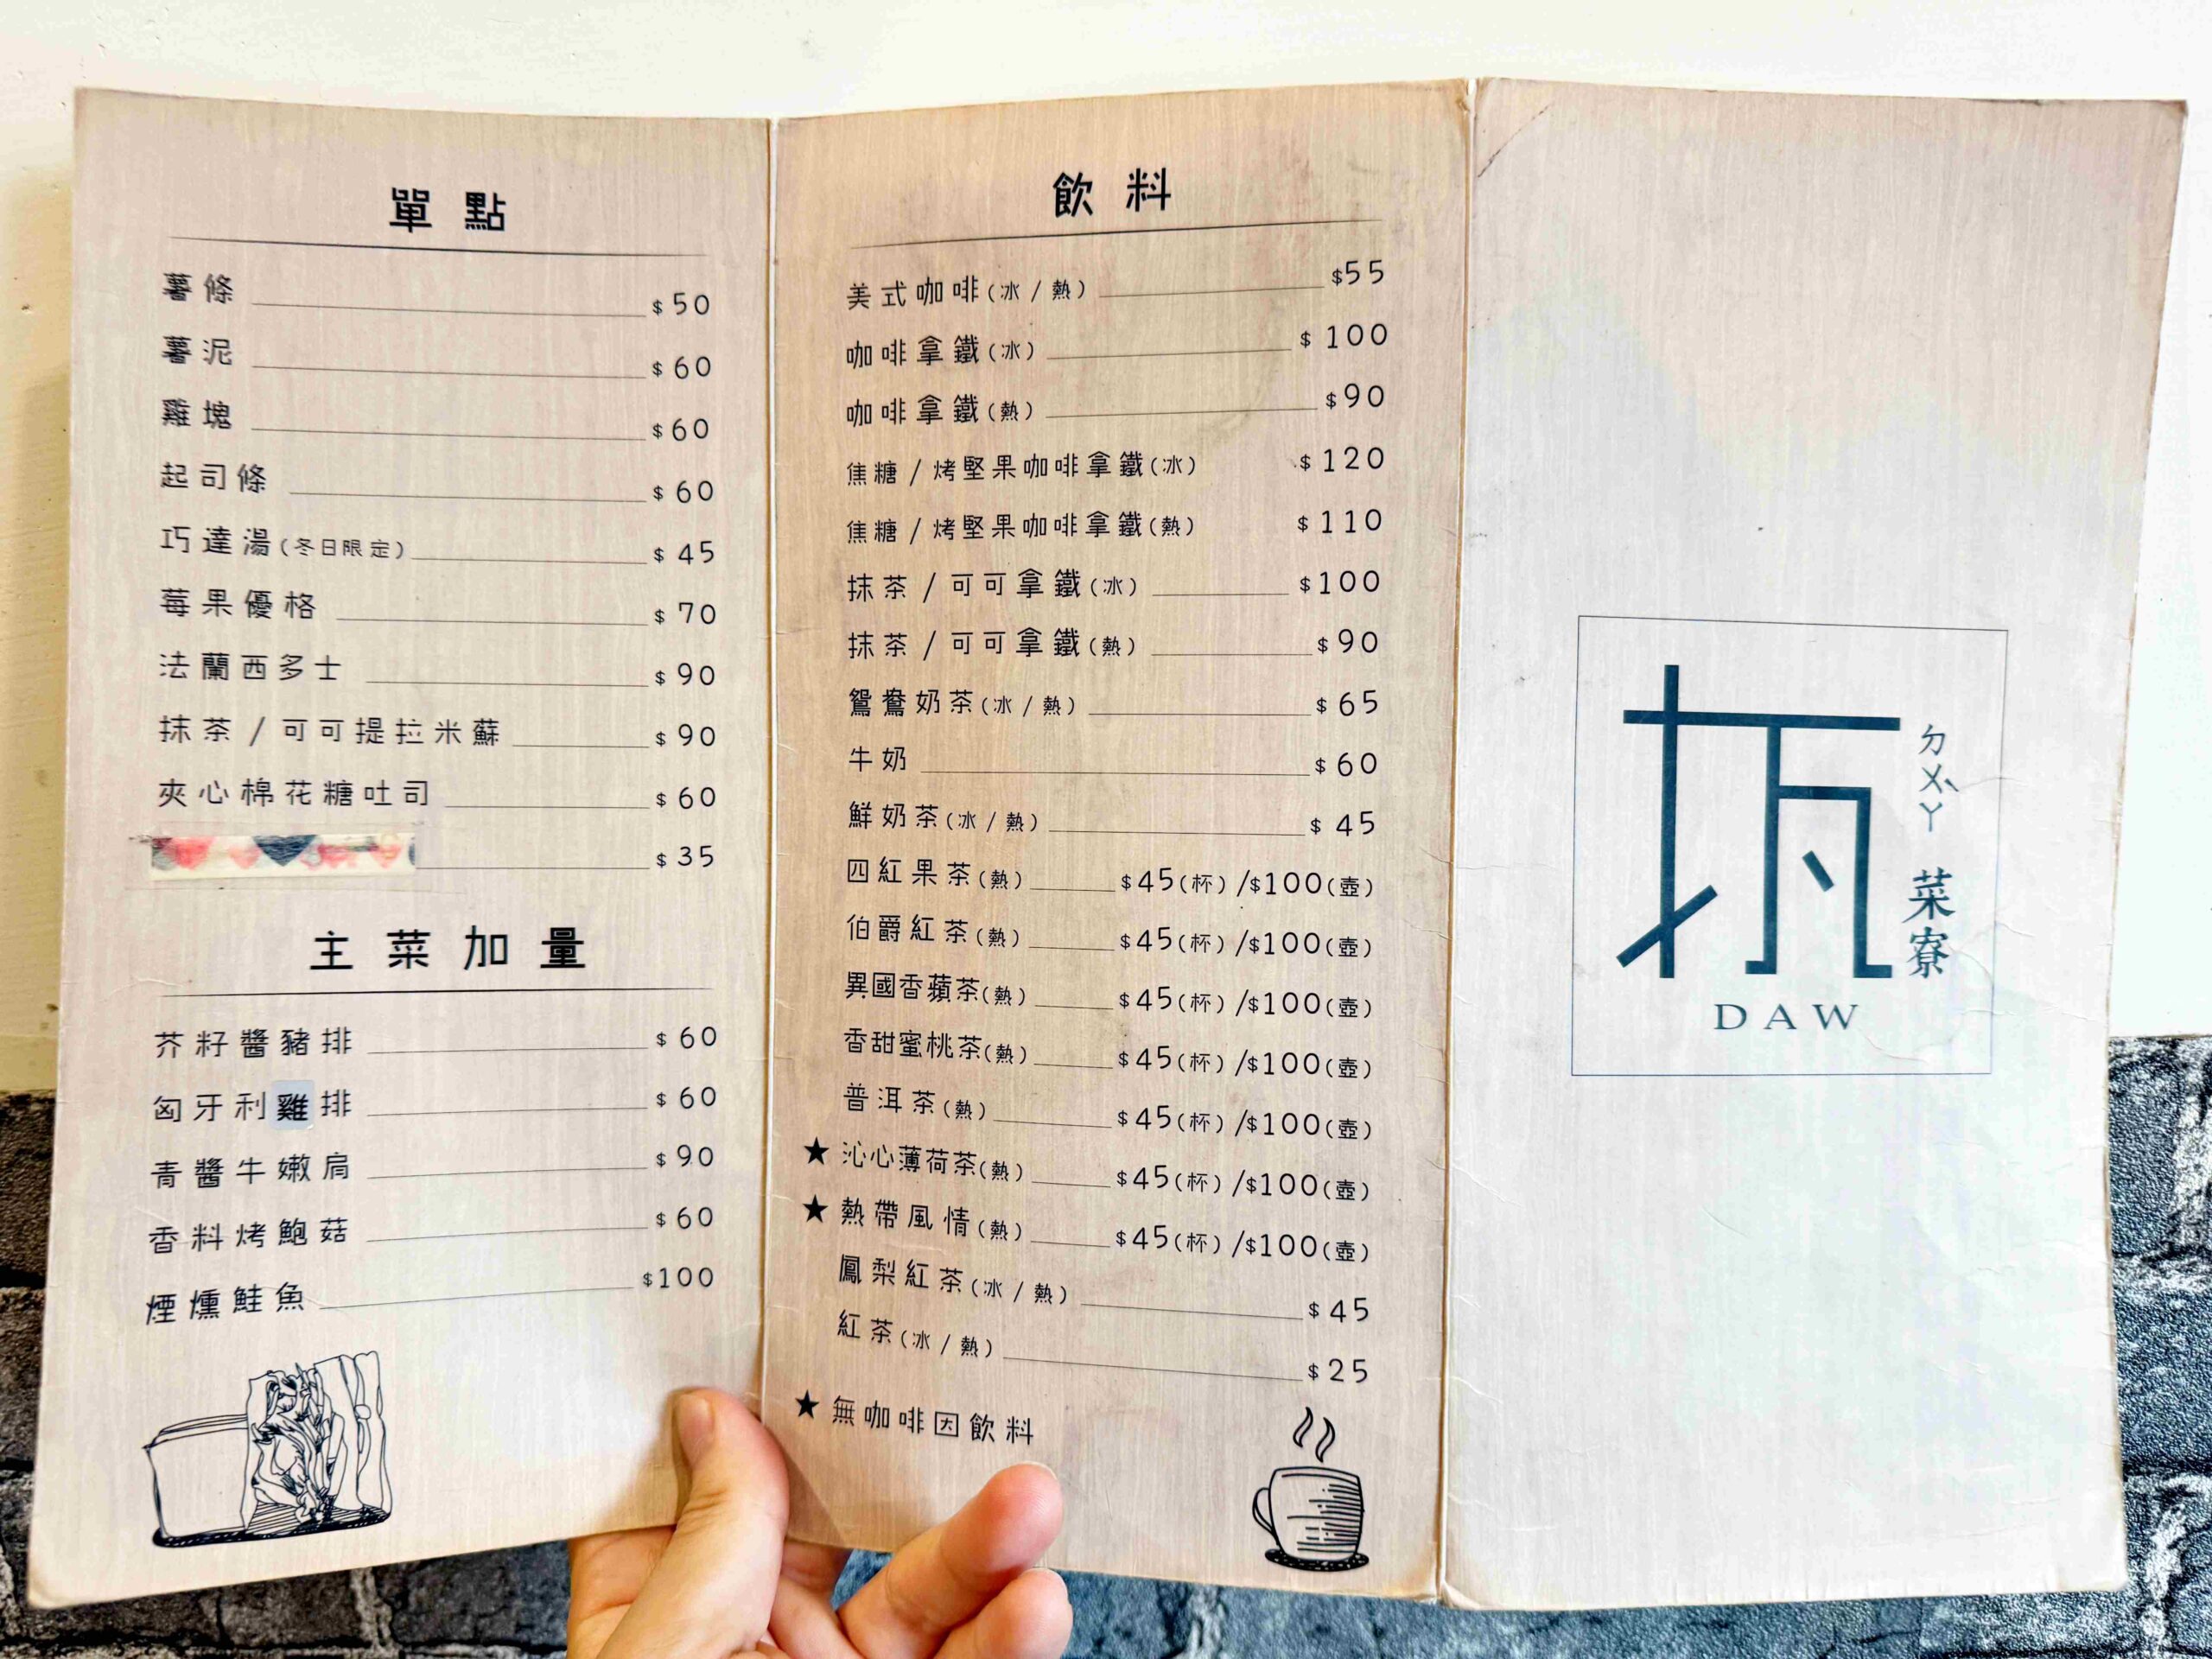 單點
薯條 $50
薯泥 $60
雞塊 $60
起司條 $60
巧達湯(冬日限定) $45
莓果優格 $70
法蘭西多士 $90
抹茶/可可提拉米蘇 $90
夾心棉花糖吐司 $60
$35
主菜加量
芥籽醬豬排 $60
匈牙利雞排 $60
青醬牛嫩肩 $90
香料烤鮑菇 $60
煙燻鮭魚 $100
飲料
美式咖啡(冰/熱) $55
咖啡拿鐵(冰) $100
咖啡拿鐵(熱) $90
焦糖/烤堅果咖啡拿鐵(冰) $120
焦糖/烤堅果咖啡拿鐵(熱) $110
抹茶/可可拿鐵(冰) $100
抹茶/可可拿鐵(熱) $90
鴛鴦奶茶(冰/熱) $65
牛奶 $60
鮮奶茶(冰/熱) $45
四紅果茶(熱) $45(杯)/$100(壺)
伯爵紅茶(熱) $45(杯)/$100(壺)
異國香蘋茶(熱) $45(杯)/$100(壺)
香甜蜜桃茶(熱) $45(杯)/$100(壺)
普洱茶(熱) $45(杯)/$100(壺)
★沁心薄荷茶(熱) $45(杯)/$100(壺)
★熱帶風情(熱) $45(杯)/$100(壺)
鳳梨紅茶(冰/熱) $45
紅茶(冰/熱) $25
★無咖啡因飲料
ㄉㄨˋㄚ
菜寮
DAW